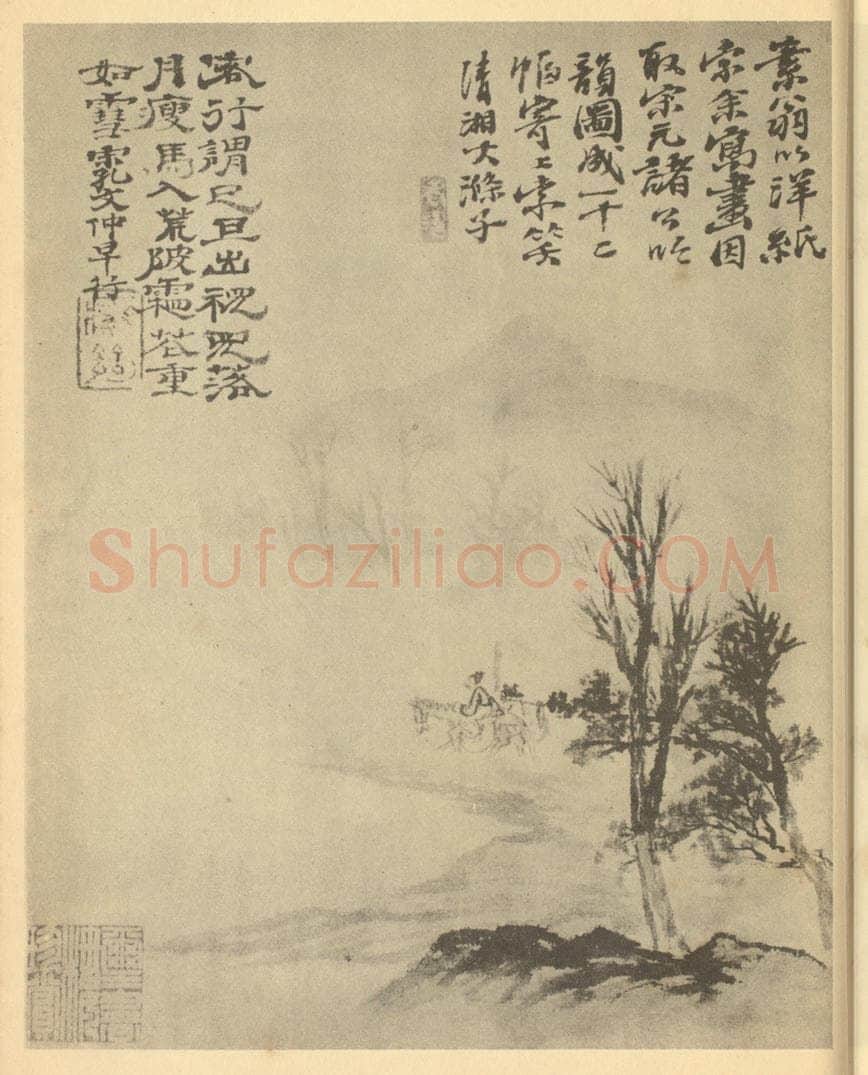 素翁以洋紙
索余寫畫因
取宋元諸公吟
韻圖成一十二
幅寄上索笑
清湘大滌子
行謂已旦出視見落
月瘦馬入荒陂霜花重
如雪宋孔文仲早行
Shufaziliao.COM